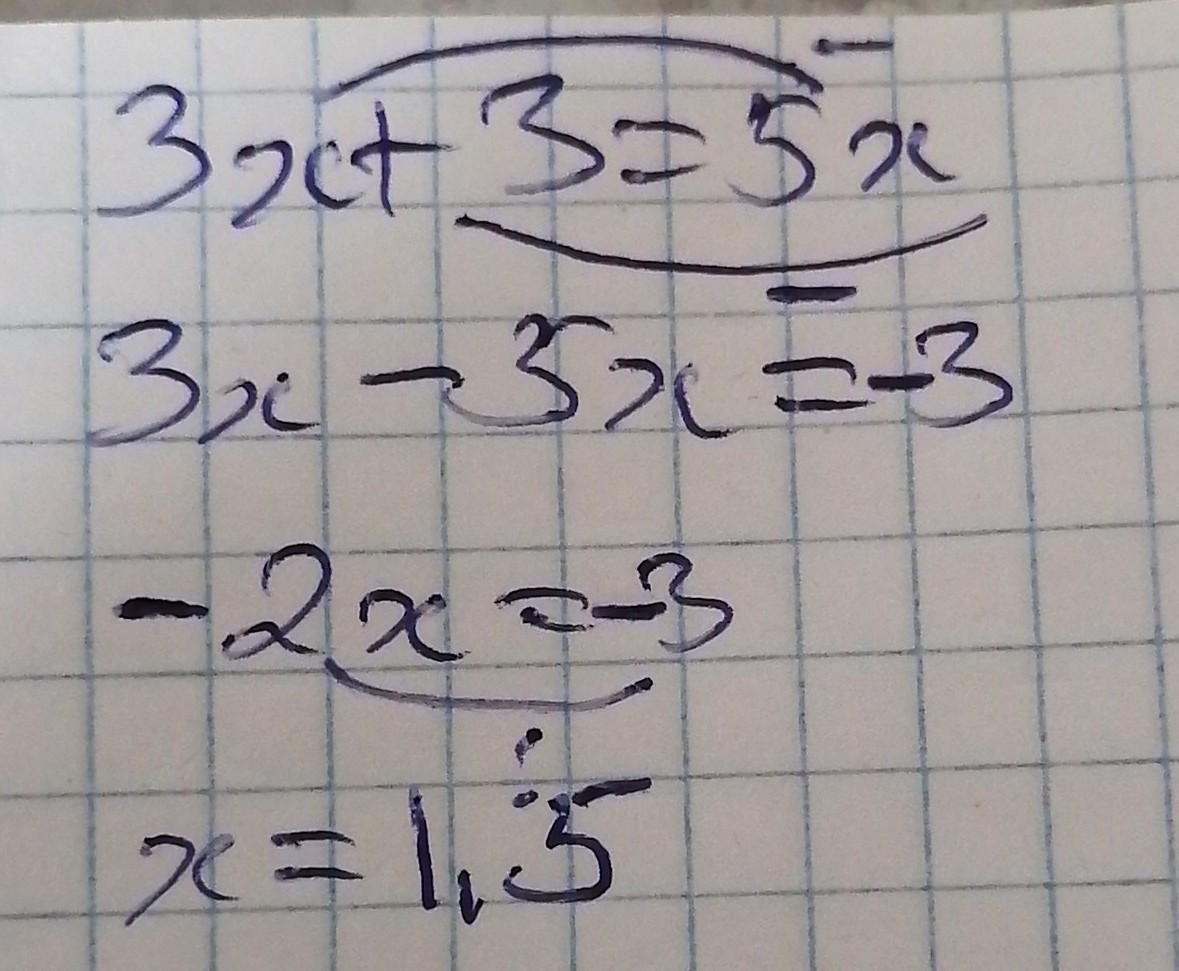 3x+3=5x
3x-5x=-3
-2x=-3
x=1,5